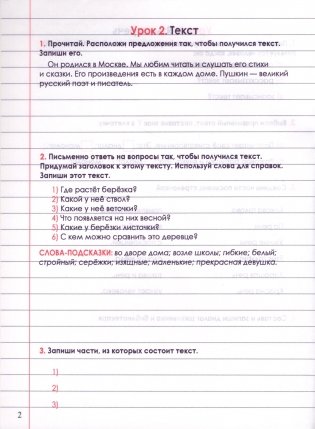 Урок 2. Текст
1. Прочитай. Расположи предложения так, чтобы получился текст.
Запиши его.
Он родился в Москве. Мы любим читать и слушать его стихи
и сказки. Его произведения есть в каждом доме. Пушкин — великий
русский поэт и писатель.
2. Письменно ответь на вопросы так, чтобы получился текст.
Придумай заголовок к этому тексту. Используй слова для справок.
Запиши этот текст.
1) Где растёт берёзка?
2) Какой у неё ствол?
3) Какие у неё веточки?
4) Что появляется на них весной?
5) Какие у берёзки листочки?
6) С кем можно сравнить это деревце?
СЛОВА-ПОДСКАЗКИ: во дворе дома; возле школы; гибкие; белый;
стройный; серёжки; изящные; маленькие; прекрасная девушка.
3. Запиши части, из которых состоит текст.
1)
2)
3)
2